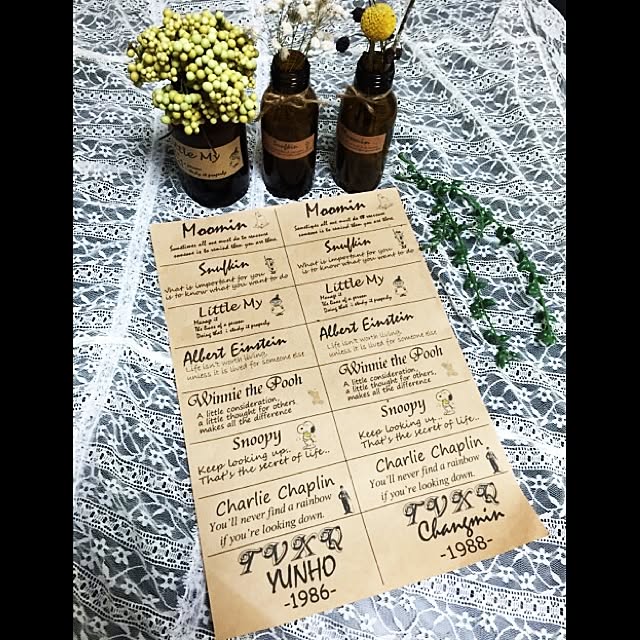 Little My
Snufkin
Moomin
Sometimes all one must do to reassure
someone is to remind them you are there.
Moomin
Sometimes all one must do to reassure
someone is to remind them you are there.
Snufkin
What is important for you
is to know what you want to do
Snufkin
What is important for you
is to know what you want to do
Little My
Little My
Albert Einstein
Life isn't worth living,
unless it is lived for someone else
Albert Einstein
Life isn't worth living,
unless it is lived for someone else
Winnie the Pooh
A little consideration,
a little thought for others
makes all the difference
Winnie the Pooh
A little consideration,
a little thought for others
makes all the difference
Snoopy
Keep looking up..
That's the secret of life..
Snoopy
Keep looking up..
That's the secret of life..
Charlie Chaplin
You'll never find a rainbow
if you're looking down.
Charlie Chaplin
You'll never find a rainbow
if you're looking down.
TVXQ
YUNHO
-1986-
TVXQ
Changmin
-1988-